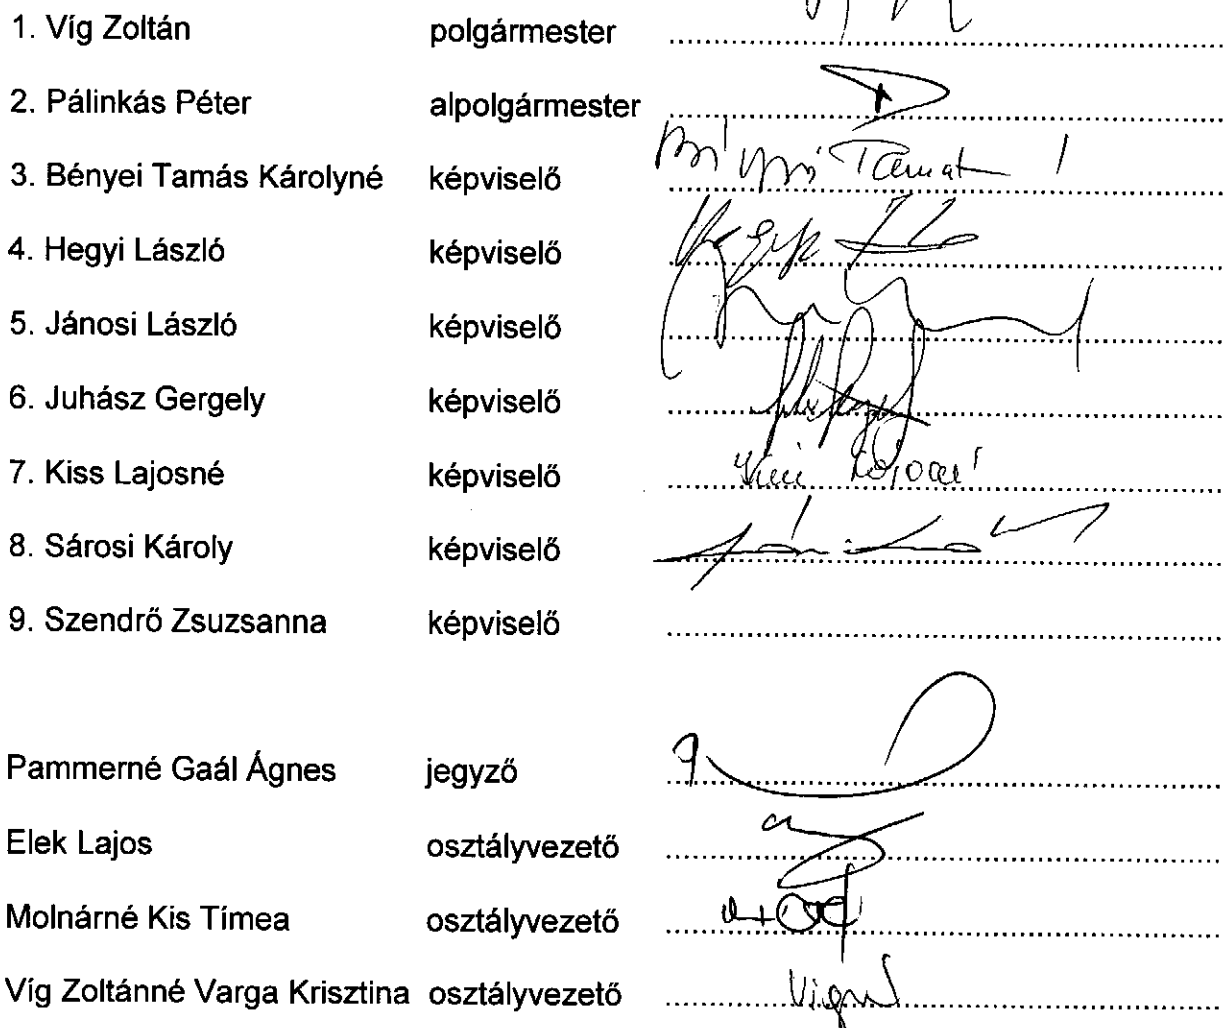 1. Víg Zoltán polgármester
2. Pálinkás Péter alpolgármester
3. Bényei Tamás Károlyné képviselő
4. Hegyi László képviselő
5. Jánosi László képviselő
6. Juhász Gergely képviselő
7. Kiss Lajosné képviselő
8. Sárosi Károly képviselő
9. Szendrő Zsuzsanna képviselő
Pammerné Gaál Ágnes jegyző
Elek Lajos osztályvezető
Molnárné Kis Tímea osztályvezető
Víg Zoltánné Varga Krisztina osztályvezető